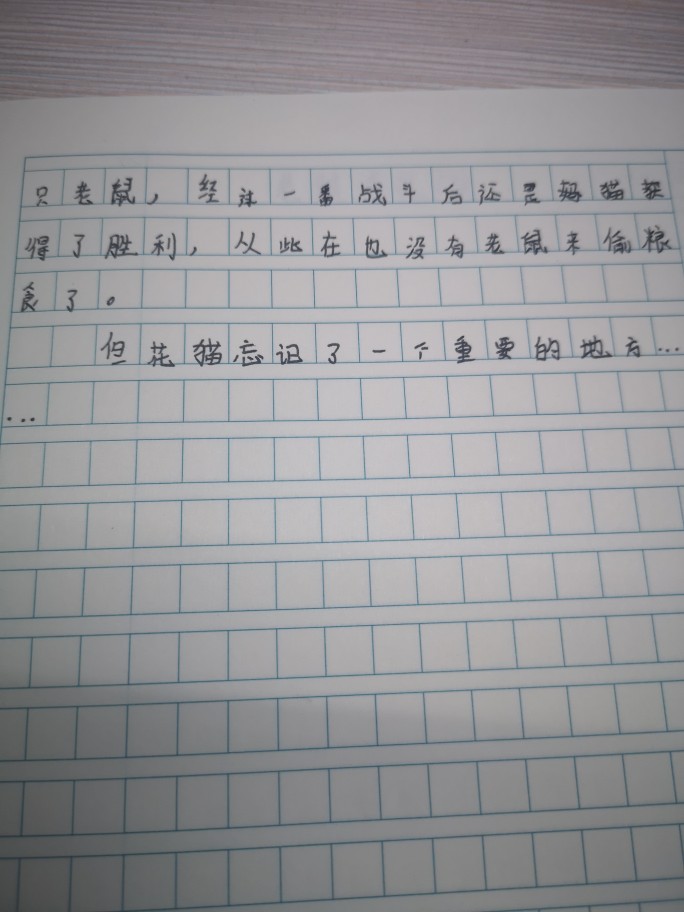 只老鼠，经过一番战斗后还是妈猫获
得了胜利，从此在也没有老鼠来偷粮
食了。
但花猫忘记了一个重要的地方…
…